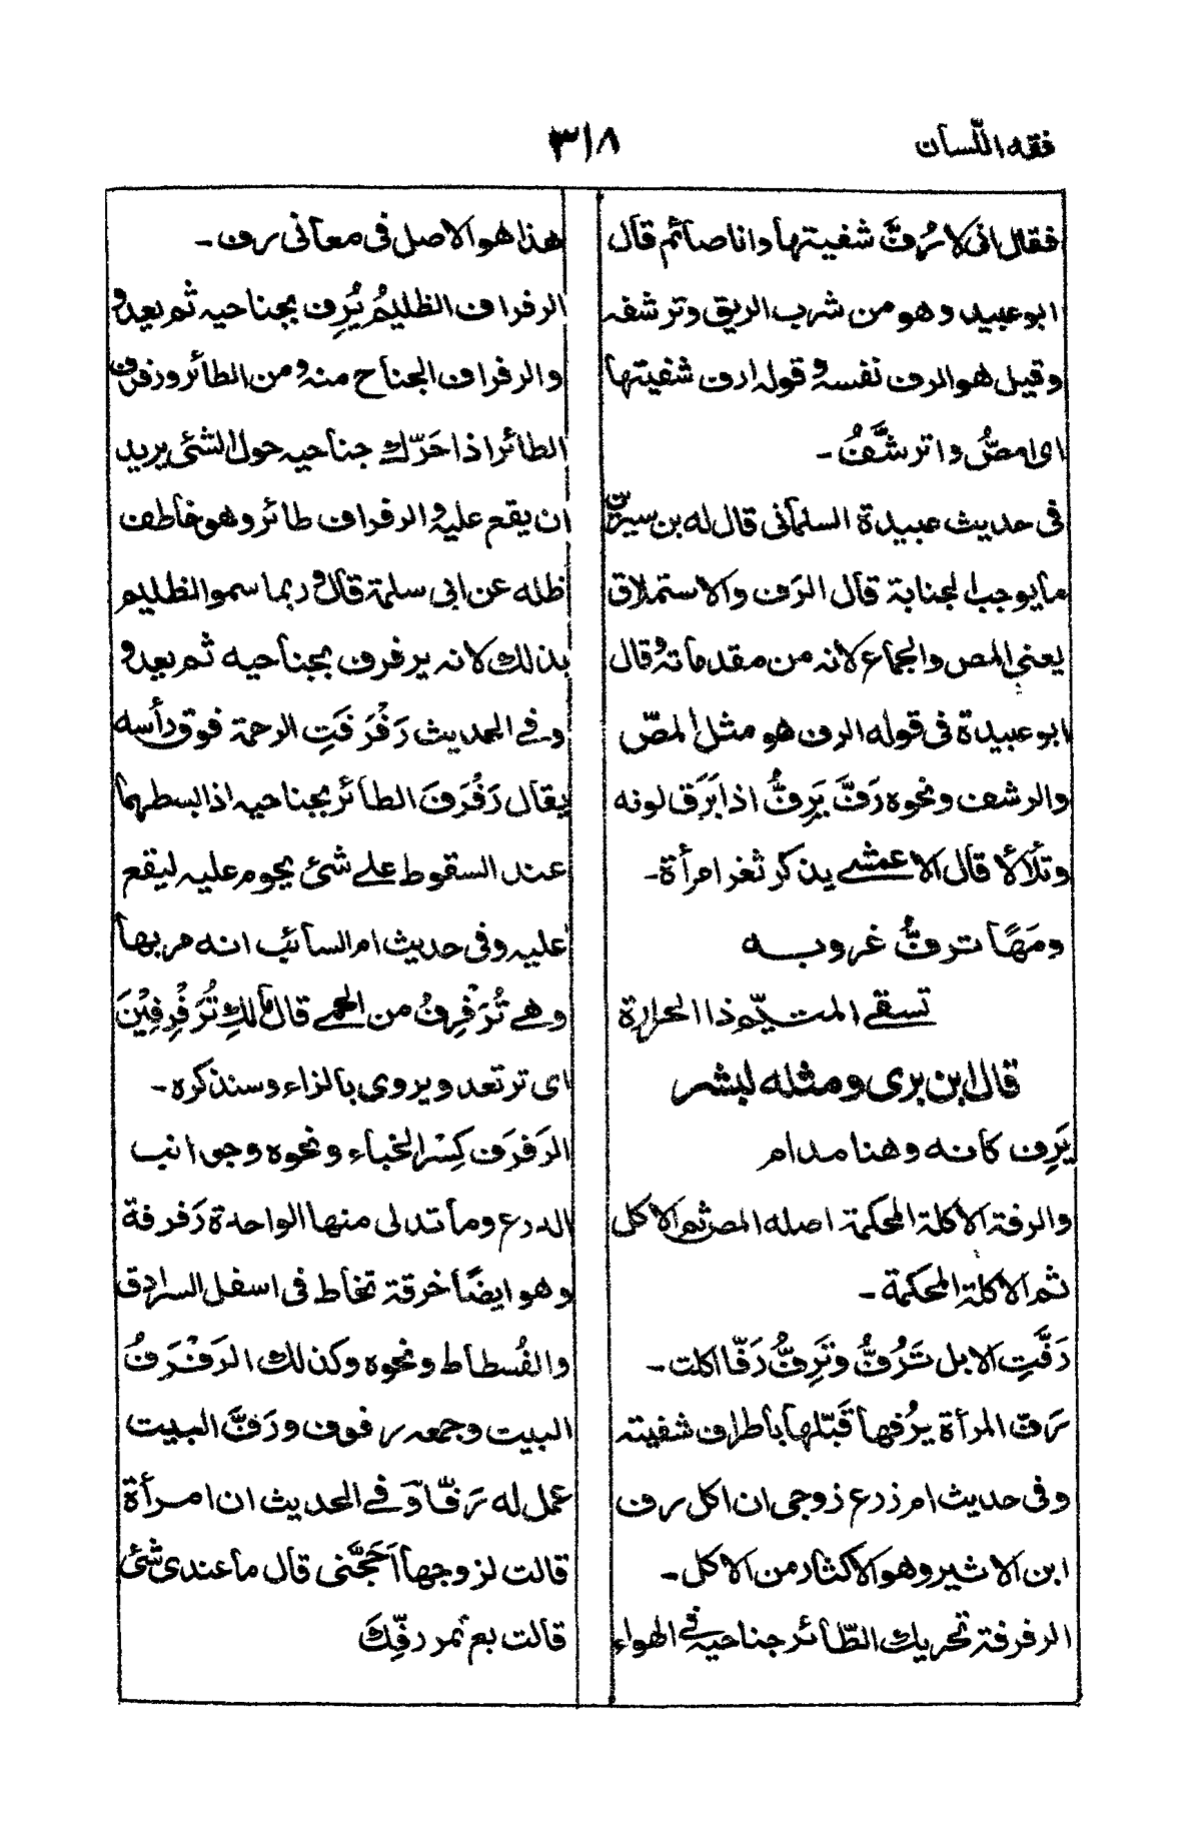 فقه اللّسان
٣١٨
فقال انى لا رُفُّ شفيتها وانا صائم قال
ابو عبيد وهو من شرب الريق وترشفه
وقيل هو الرف نفسه وقوله ارف شفيتها
اى امصُّ واترشَّفُ -
فى حديث عبيدة السلمانى قال له بن سيرين
ما يوجب الجنابة قال الرَف والاستملاق
يعنى المص والجماع لانه من مقدماته وقال
ابو عبيدة فى قوله الرف هو مثل المصّ
والرشف ونحوه رَفَّ يَرِفُّ اذا بَرَق لونه
وتلألأ قال الاعمشى يذكر ثغر امرأة -
ومَهًا ترفُّ غروبه
تسقى المتيّم ذا الحرارة
قال ابن برى ومثله لبشر
يَرِف كانه وهنا مدام
والرفة الاكلة المحكمة اصله المص ثم الاكل
ثم الاكلة المحكمة -
رَفَّتِ الابل تَرُفُّ وتَرِفُّ رَفًّا اكلت -
رَفّ المرأة يرُفها قَبّلها باطراف شفيته
وفى حديث ام زرع زوجى ان اكل رف
ابن الاثير وهو الاكثار من الاكل -
الرفرفة تحريك الطّائر جناحيه فى الهواء
هذا هو الاصل فى معانى رف -
الرفراف الظليمُ يُرِف بجناحيه ثم يعدو
والرفراف الجناح منه ومن الطائر ورفرف
الطائر اذا حَرّك جناحيه حول الشئى يريد
ان يقع عليه والرفراف طائر وهو خاطف
ظله عن ابى سلمة قال وربما سموا الظليم
بذلك لانه يرفرف بجناحيه ثم يعدو
وفى الحديث رَفْرَفَتِ الرحمة فوق رأسه
يقال رَفْرَفَ الطائر بجناحيه اذا بسطهما
عند السقوط على شئ يحوم عليه ليقع
عليه وفى حديث ام السائب انه مر بها
وهى تُرَفْرِفُ من الحمى قال مالكِ تُرَفْرِفِيْنَ
اى ترتعد ويروى بالزاء وسنذكره -
الرَفرَف كِسْر الخباء ونحوه وجوانب
الدرع وما تدلى منها الواحدة رَفرفة
وهو ايضًا خرقة تخاط فى اسفل السرادق
والفُسطاط ونحوه وكذلك الرَفْرَفُ
البيت وجمعه رفوف ورَفَّ البيت
عمل له رَفًّا وفى الحديث ان امرأة
قالت لزوجها اَحِجَّنى قال ما عندى شئى
قالت بع تمر رفِّكَ